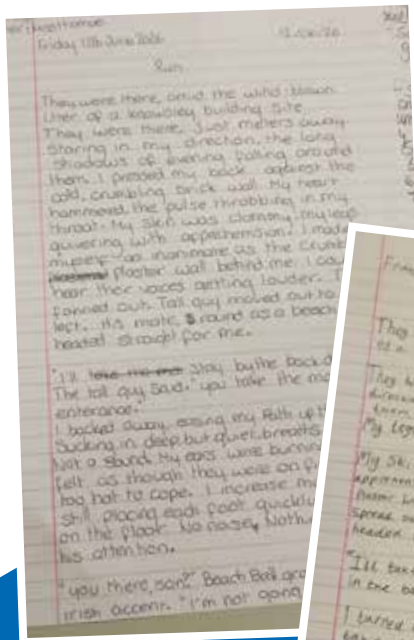 Friday 12th June 2026
Run
They were there, amid the wind blown
litter of a Knowsley building site.
They were there. Just meters away.
Staring in my direction, the long
shadows of evening falling around
them. I pressed my back against the
cold, crumbling brick wall. My heart
hammered, the pulse throbbing in my
throat. My skin was clammy, my legs
quivering with apprehension. I made
myself as inanimate as the crumb
plaster wall behind me. I cou
hear their voices getting louder. T
fanned out. Tall guy moved out to
left. His mate, round as a beach
headed straight for me.
"I'll stay by the back d
The tall guy said. "you take the ma
enterance."
I backed away, easing my Path up t
Sucking in deep but quiet breaths
Not a sound. My ears were burnin
felt as though they were on fi
too hot to cope. I increase my
still placing each foot quickly
on the floor. No noise, Noth
his attention.
"you there, son?" Beach Ball gro
irish accent. "I'm not going
They
They
My leg
My Ski
spread ou
headed
"I'll tak
in the ba
I turned